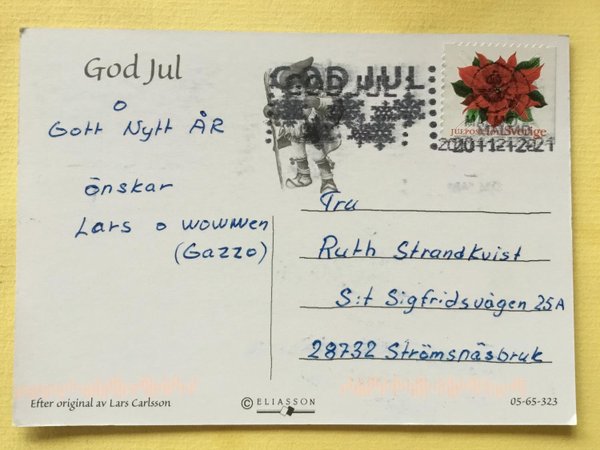 God Jul
o
Gott Nytt ÅR
önskar
Lars o wowwen
(Gazzo)
GOD JUL
JULPOST Sverige
2011-12-21
Tru
Ruth Strandkvist
S:t Sigfridsvägen 25A
28732 Strömsnäsbruk
Efter original av Lars Carlsson
© ELIASSON
05-65-323